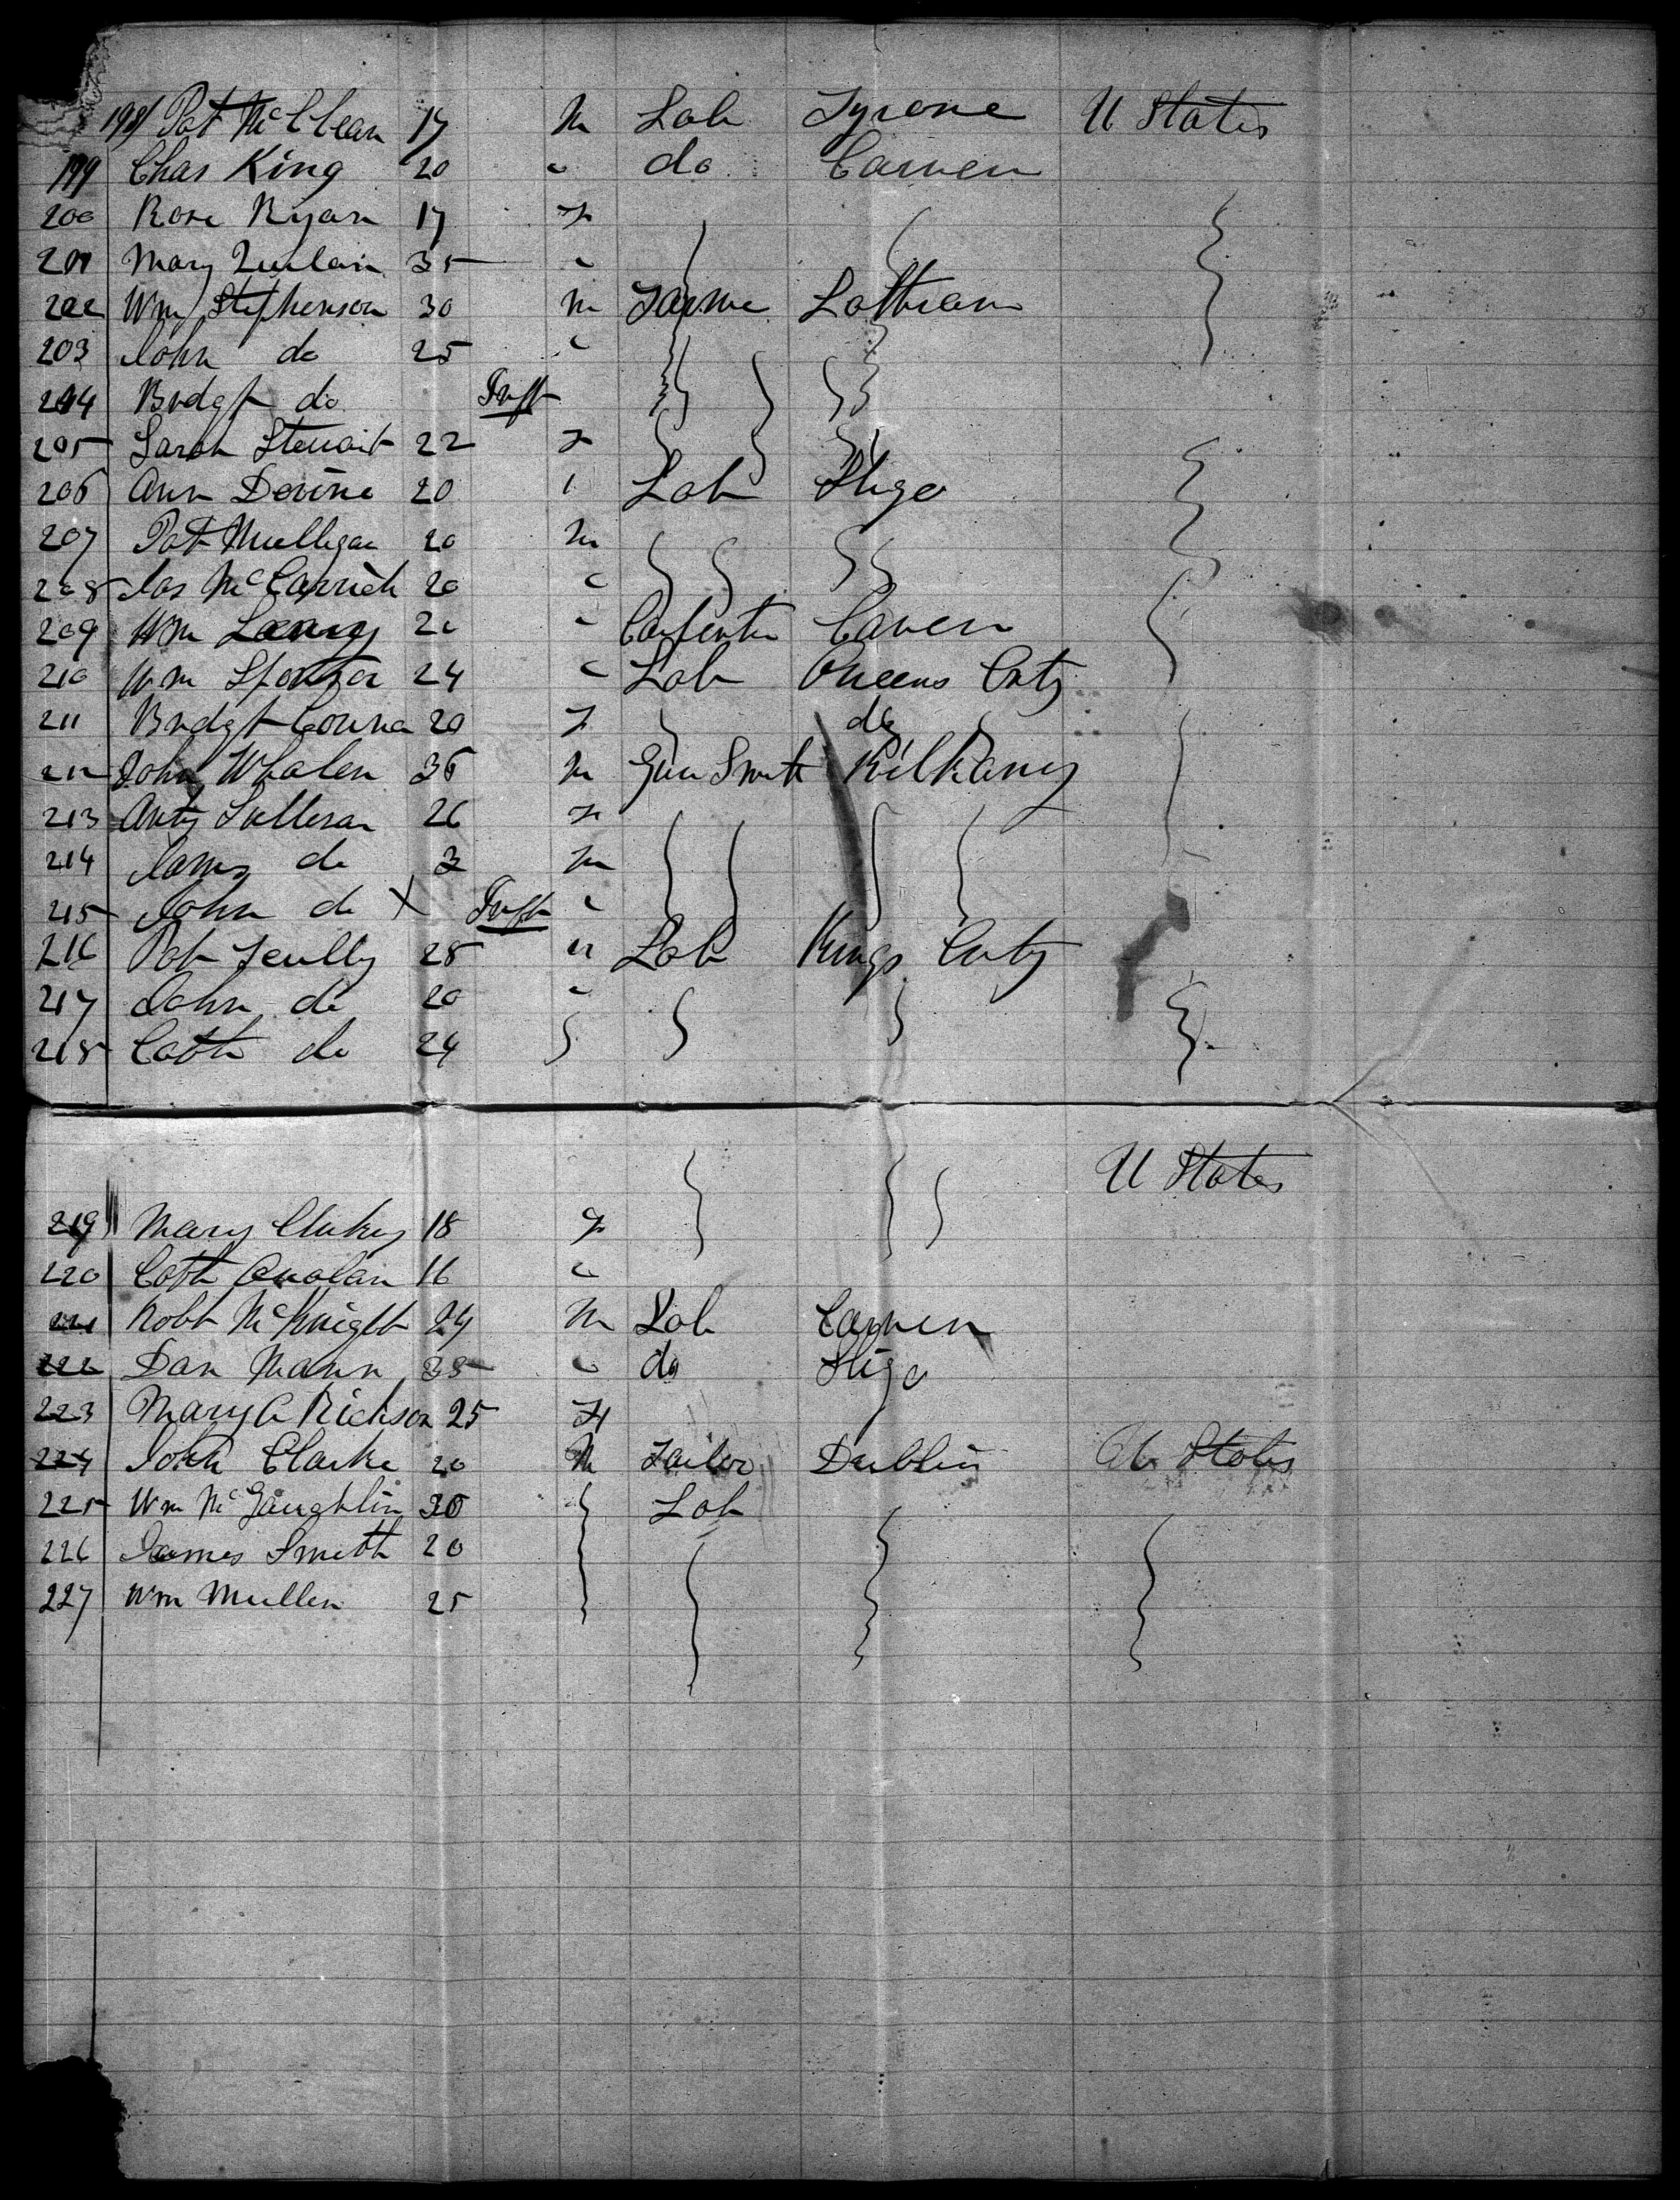 198 Pat McClean 17 M Lab Tyrone U States
199 Chas King 20 " do Caven
200 Rose Ryan 17 F
201 Mary Quilan 35 "
202 Wm Stephenson 30 M Farme
203 John do 25 "
204 Bridgt do Inft
205 Sarah Stewart 22 F
206 Ann Devine 20 " Lab Sligo
207 Pat Mulligan 20 M
208 Jas McCarrick 20 "
209 Wm 20 " Carpenter Caven
210 Wm 24 " Lab Queens Cnty
211 Bridgt 20 F do
212 John Whalen 36 M Gun Smith Kilkany
213 Sullivan 26 F
214 James do 3 M
215 John do X Inft "
216 Pat Scully 28 " Lab Kings Cnty
217 John do 20 "
218 Cath do 24
U States
219 Mary 18 F
220 Cath 16 "
221 Robt McKnight 24 M Lab Caven
222 Dan Mann 35 " do Sligo
223 Mary A Rickson 25 F
224 John Clarke 20 M Tailor Dublin U States
225 Wm McGaughlin 30 Lab
226 James Smith 20
227 Wm Mullen 25